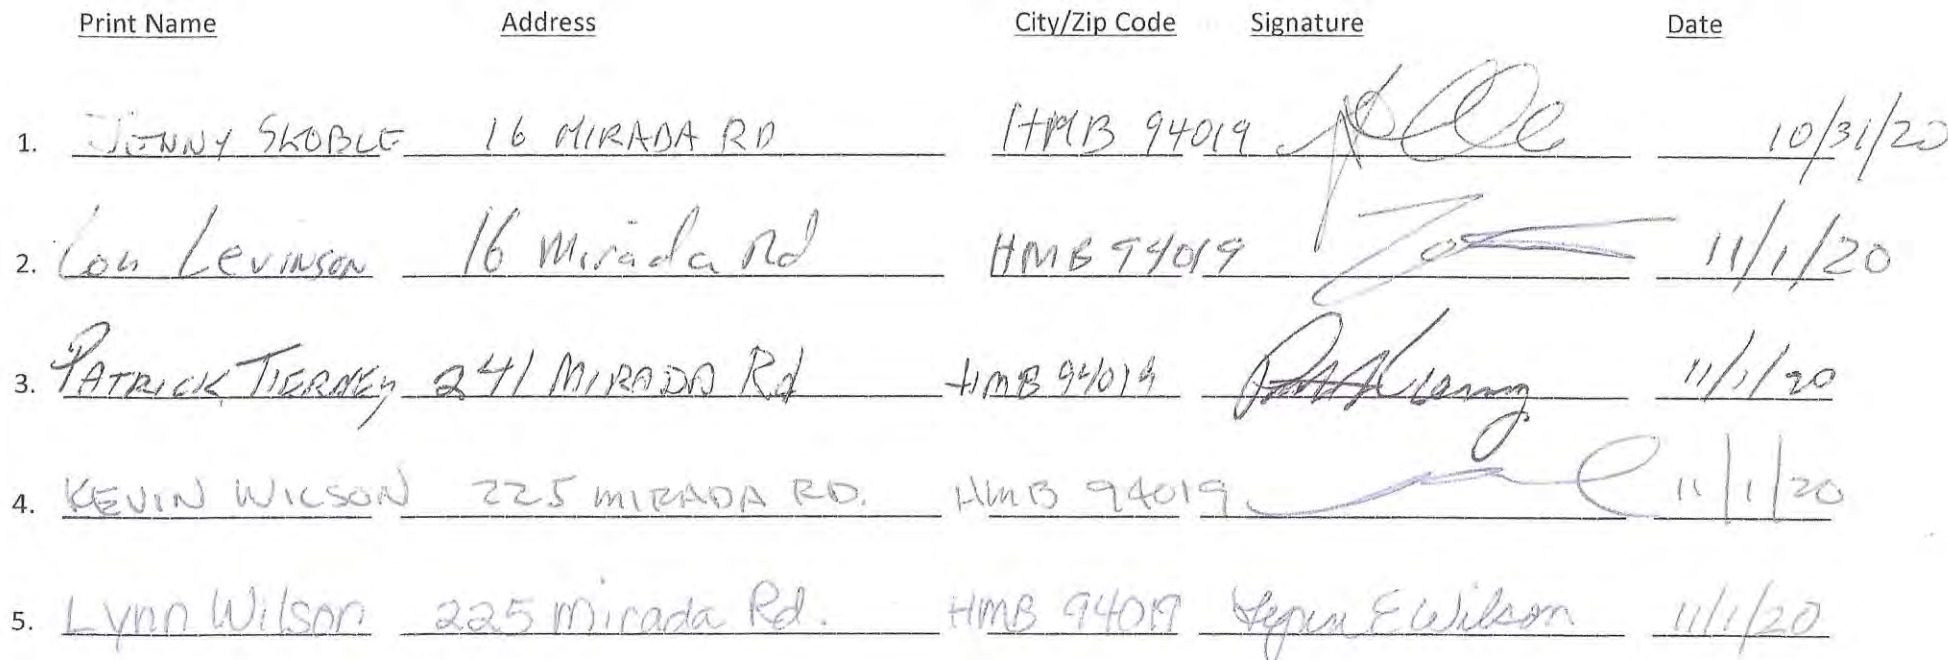 Print Name Address City/Zip Code Signature Date
1. JENNY SLOBLE 16 MIRADA RD HMB 94019 10/31/20
2. Lou Levinson 16 Mirada Rd HMB 94019 11/1/20
3. PATRICK TIERNEY 241 MIRADA Rd HMB 94019 11/1/20
4. KEVIN WILSON 225 MIRADA RD. HMB 94019 11/1/20
5. Lynn Wilson 225 Mirada Rd. HMB 94019 Lynn E Wilson 11/1/20